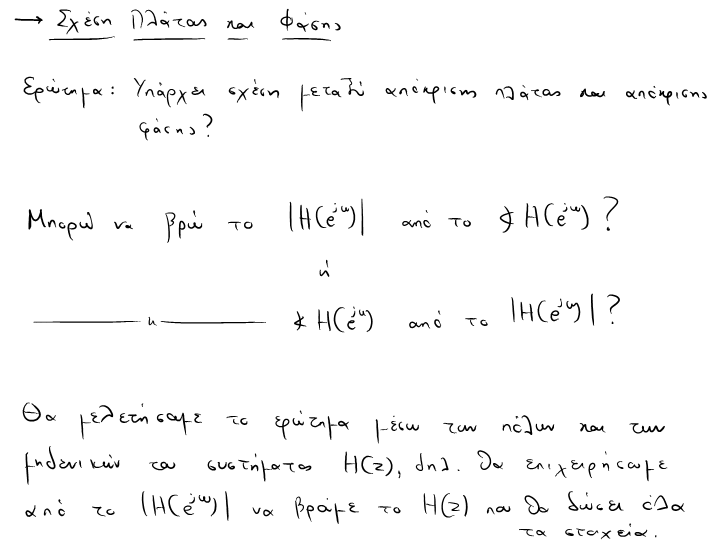 → Σχέση Πλάτας και Φάσης
Ερώτημα: Υπάρχει σχέση μεταξύ απόκρισης πλάτας και απόκρισης
φάσης?
Μπορώ να βρώ το |H(e^{jω})| από το ∢H(e^{jω})?
ή
——— " ——— ∢H(e^{jω}) από το |H(e^{jω})|?
Θα μελετήσουμε το ερώτημα μέσω των πόλων και των
μηδενικών του συστήματος H(z), δηλ. θα επιχειρήσουμε
από το |H(e^{jω})| να βρούμε το H(z) που θα δώσει όλα
τα στοιχεία.